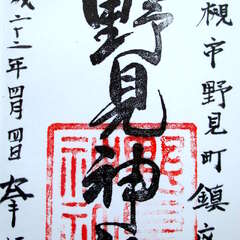 槻市野見町鎮
野見神
成二十二年四月四日 奉